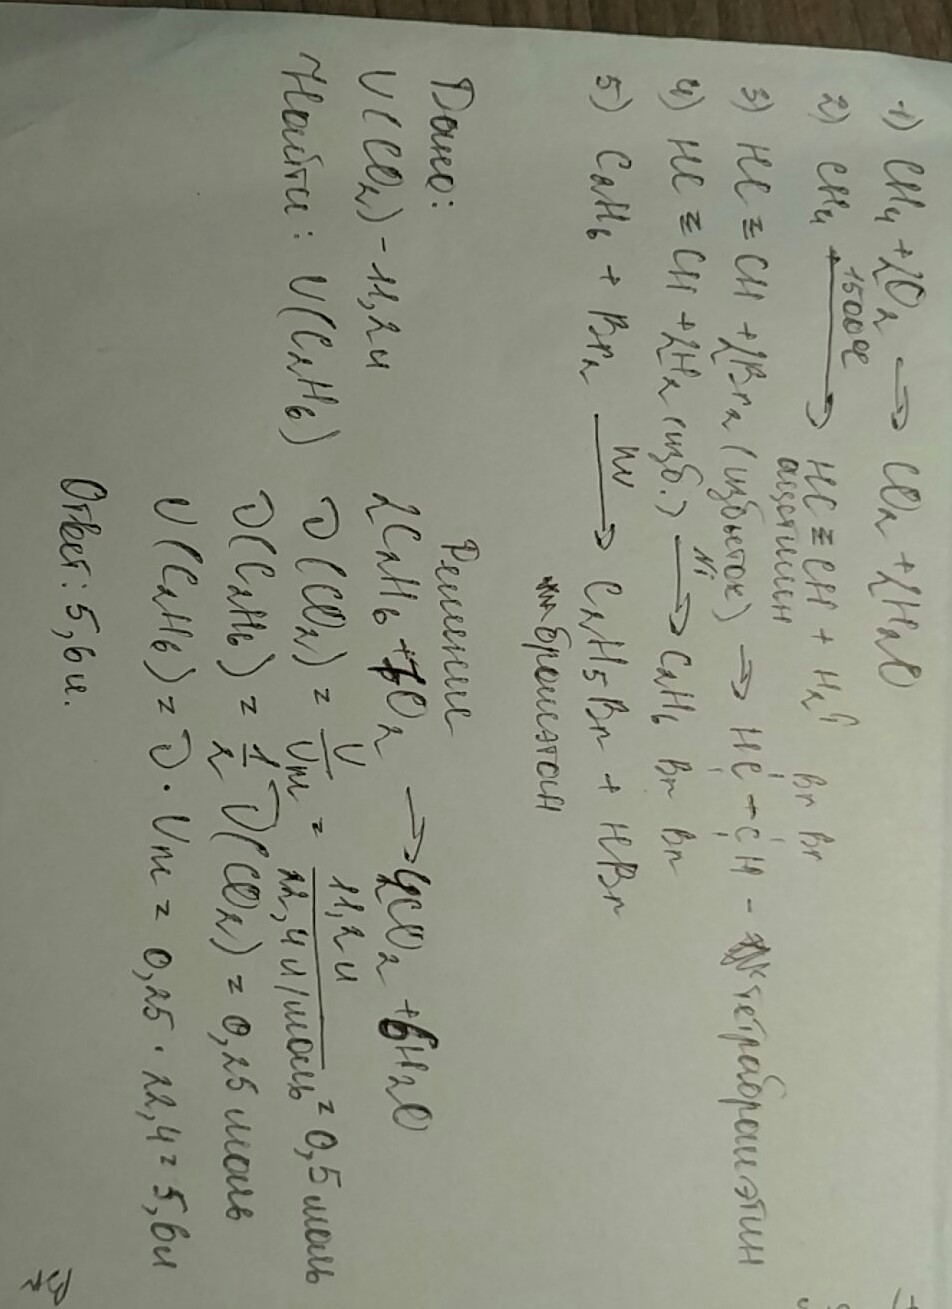 1) CH₄ + 2O₂ → CO₂ + 2H₂O
2) CH₄ 1500°C → HC≡CH + H₂
ацетилен
Br Br
3) HC≡CH + 2Br₂ (избыток) → HC–CH – тетрабромэтин
Br Br
4) HC≡CH + 2H₂ (изб.) Ni → C₂H₆
5) C₂H₆ + Br₂ hν → C₂H₅Br + HBr
бромэтан
Дано:
V(CO₂) - 11,2л
Найти: V(C₂H₆)
Решение
2C₂H₆ + 7O₂ → 4CO₂ + 6H₂O
ν(CO₂) = V/Vm = 11,2л/22,4л/моль = 0,5 моль
ν(C₂H₆) = 1/2 ν(CO₂) = 0,25 моль
V(C₂H₆) = ν · Vm = 0,25 · 22,4 = 5,6л
Ответ: 5,6л.